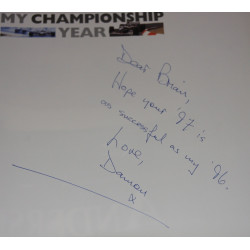 MY CHAMPIONSHIP
YEAR
Dear Brian,
Hope your '97 is
as successful as my '96.
Love,
Damon
x